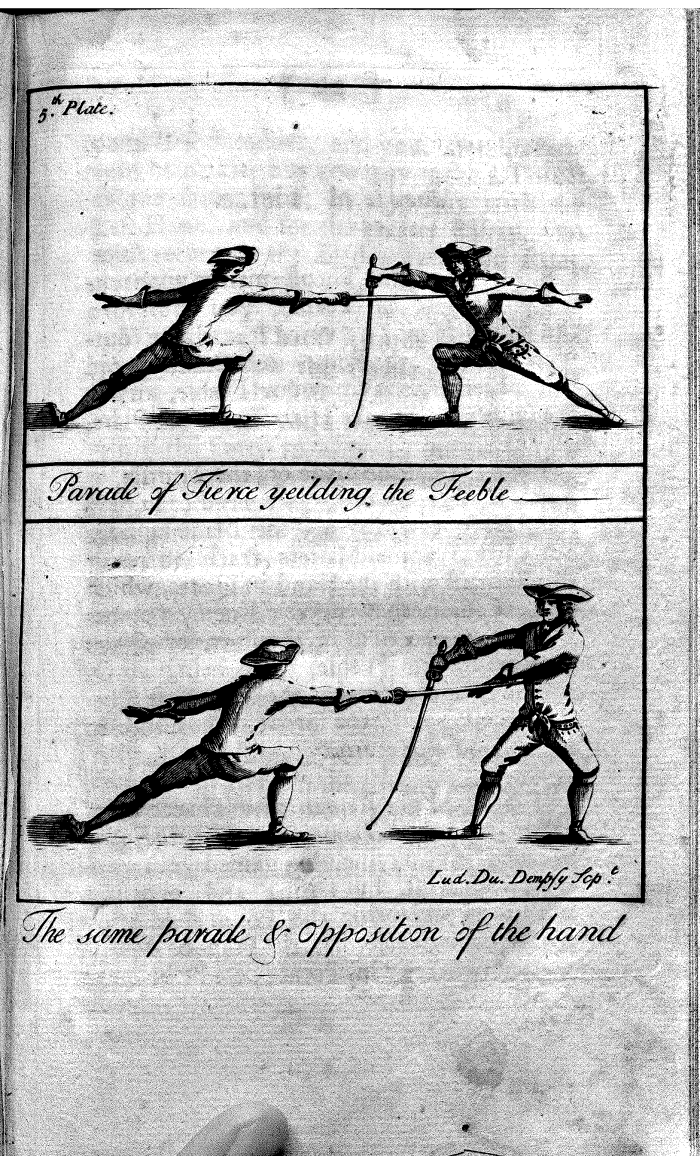 5.th Plate.
Parade of Tierce yeilding the Feeble
Lud. Du. Dempsy Scp.t
The same parade & Opposition of the hand